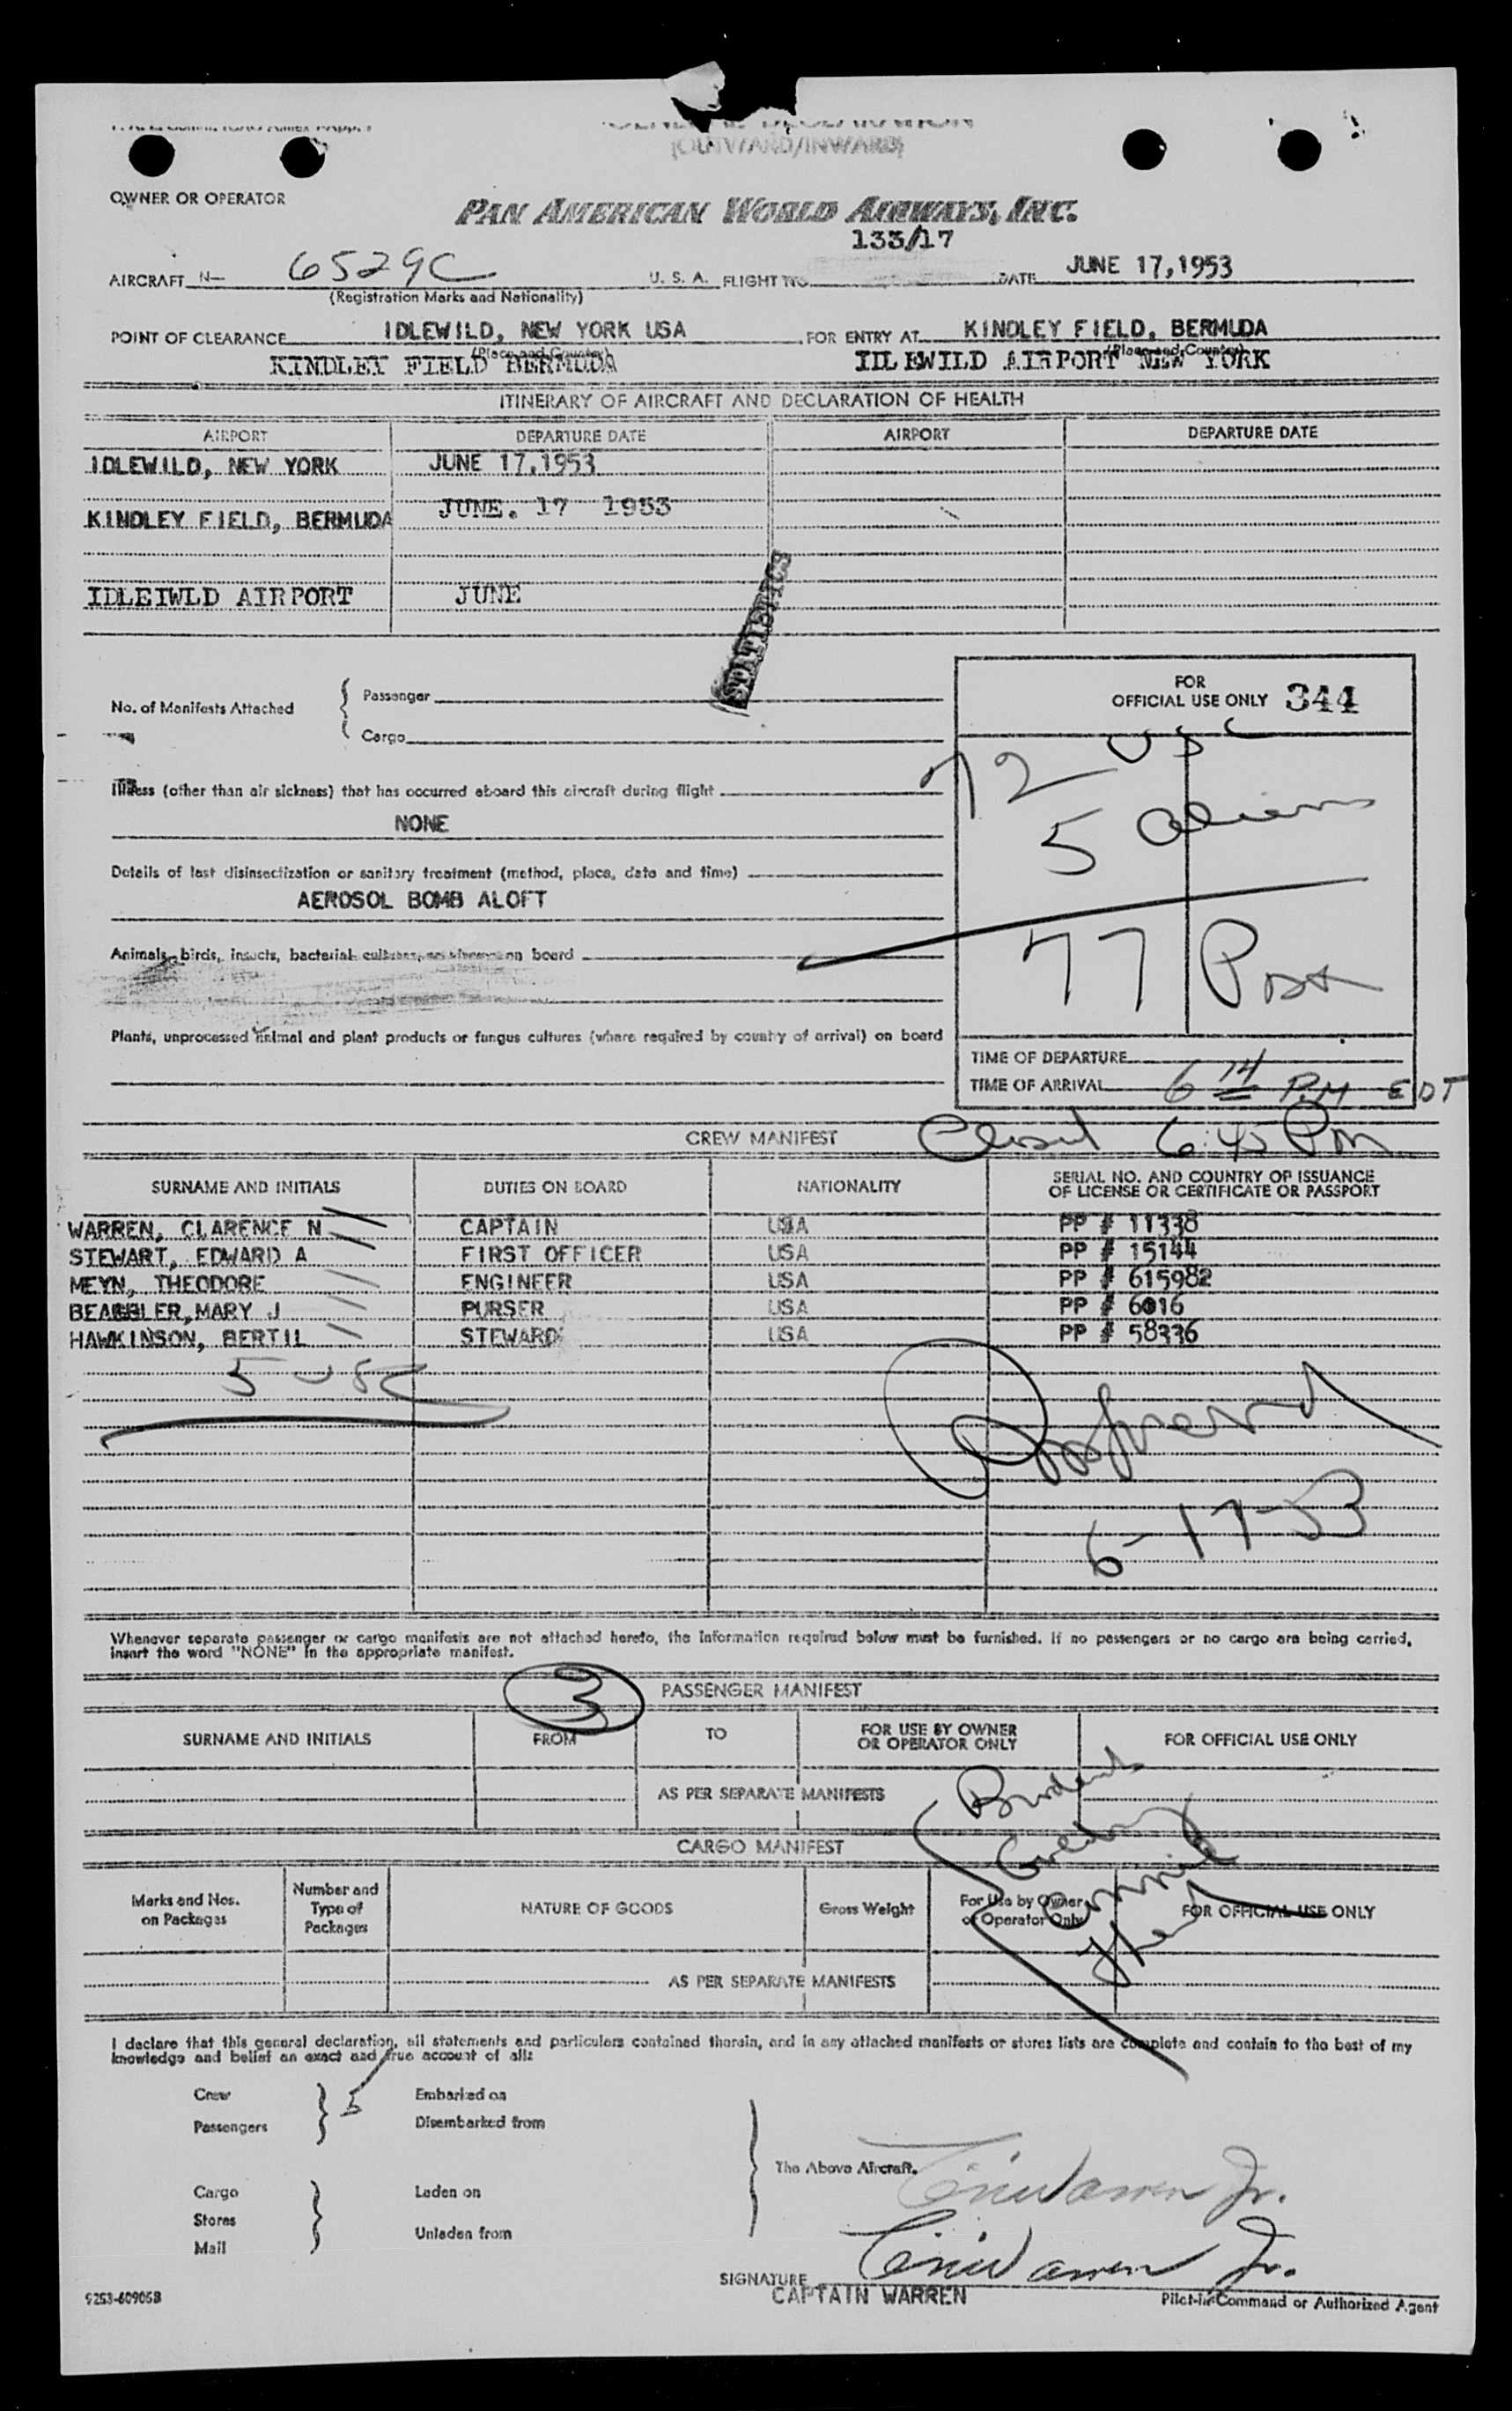 GENERAL DECLARATION
(OUTWARD/INWARD)
OWNER OR OPERATOR
PAN AMERICAN WORLD AIRWAYS, INC.
133/17
AIRCRAFT N- 6529C U. S. A. FLIGHT NO. DATE JUNE 17,1953
(Registration Marks and Nationality)
POINT OF CLEARANCE IDLEWILD, NEW YORK USA FOR ENTRY AT KINDLEY FIELD, BERMUDA
(Place and Country) (Place and Country)
KINDLEY FIELD BERMUDA IDLEWILD AIRPORT NEW YORK
ITINERARY OF AIRCRAFT AND DECLARATION OF HEALTH
AIRPORT DEPARTURE DATE AIRPORT DEPARTURE DATE
IDLEWILD, NEW YORK JUNE 17,1953
KINDLEY FIELD, BERMUDA JUNE. 17 1953
IDLEIWLD AIRPORT JUNE
STATISTICS
No. of Manifests Attached { Passenger
Cargo
FOR
OFFICIAL USE ONLY 344
72 USC
5 aliens
77 Pax
Illness (other than air sickness) that has occurred aboard this aircraft during flight
NONE
Details of last disinsectization or sanitary treatment (method, place, date and time)
AEROSOL BOMB ALOFT
Animals, birds, insects, bacterial cultures, or viruses on board
Plants, unprocessed animal and plant products or fungus cultures (where required by country of arrival) on board
TIME OF DEPARTURE
TIME OF ARRIVAL 6 14 P.M EDT
Closed 6:45 PM
CREW MANIFEST
SURNAME AND INITIALS DUTIES ON BOARD NATIONALITY SERIAL NO. AND COUNTRY OF ISSUANCE
OF LICENSE OR CERTIFICATE OR PASSPORT
WARREN, CLARENCE N CAPTAIN USA PP # 11338
STEWART, EDWARD A FIRST OFFICER USA PP # 15144
MEYN, THEODORE ENGINEER USA PP # 615982
MARY J PURSER USA PP # 6016
HAWKINSON, BERTIL STEWARD USA PP # 58336
5 USC
6-17-53
Whenever separate passenger or cargo manifests are not attached hereto, the information required below must be furnished. If no passengers or no cargo are being carried,
insert the word "NONE" in the appropriate manifest.
3
PASSENGER MANIFEST
SURNAME AND INITIALS FROM TO FOR USE BY OWNER
OR OPERATOR ONLY FOR OFFICIAL USE ONLY
AS PER SEPARATE MANIFESTS
CARGO MANIFEST
Marks and Nos.
on Packages Number and
Type of
Packages NATURE OF GOODS Gross Weight For Use by Owner
or Operator Only FOR OFFICIAL USE ONLY
AS PER SEPARATE MANIFESTS
I declare that this general declaration, all statements and particulars contained therein, and in any attached manifests or stores lists are complete and contain to the best of my
knowledge and belief an exact and true account of all:
Crew } 5 Embarked on
Passengers Disembarked from
The Above Aircraft.
Cargo Laden on
Stores
Mail Unladen from
SIGNATURE
CAPTAIN WARREN
Pilot-in-Command or Authorized Agent
9253-60905B